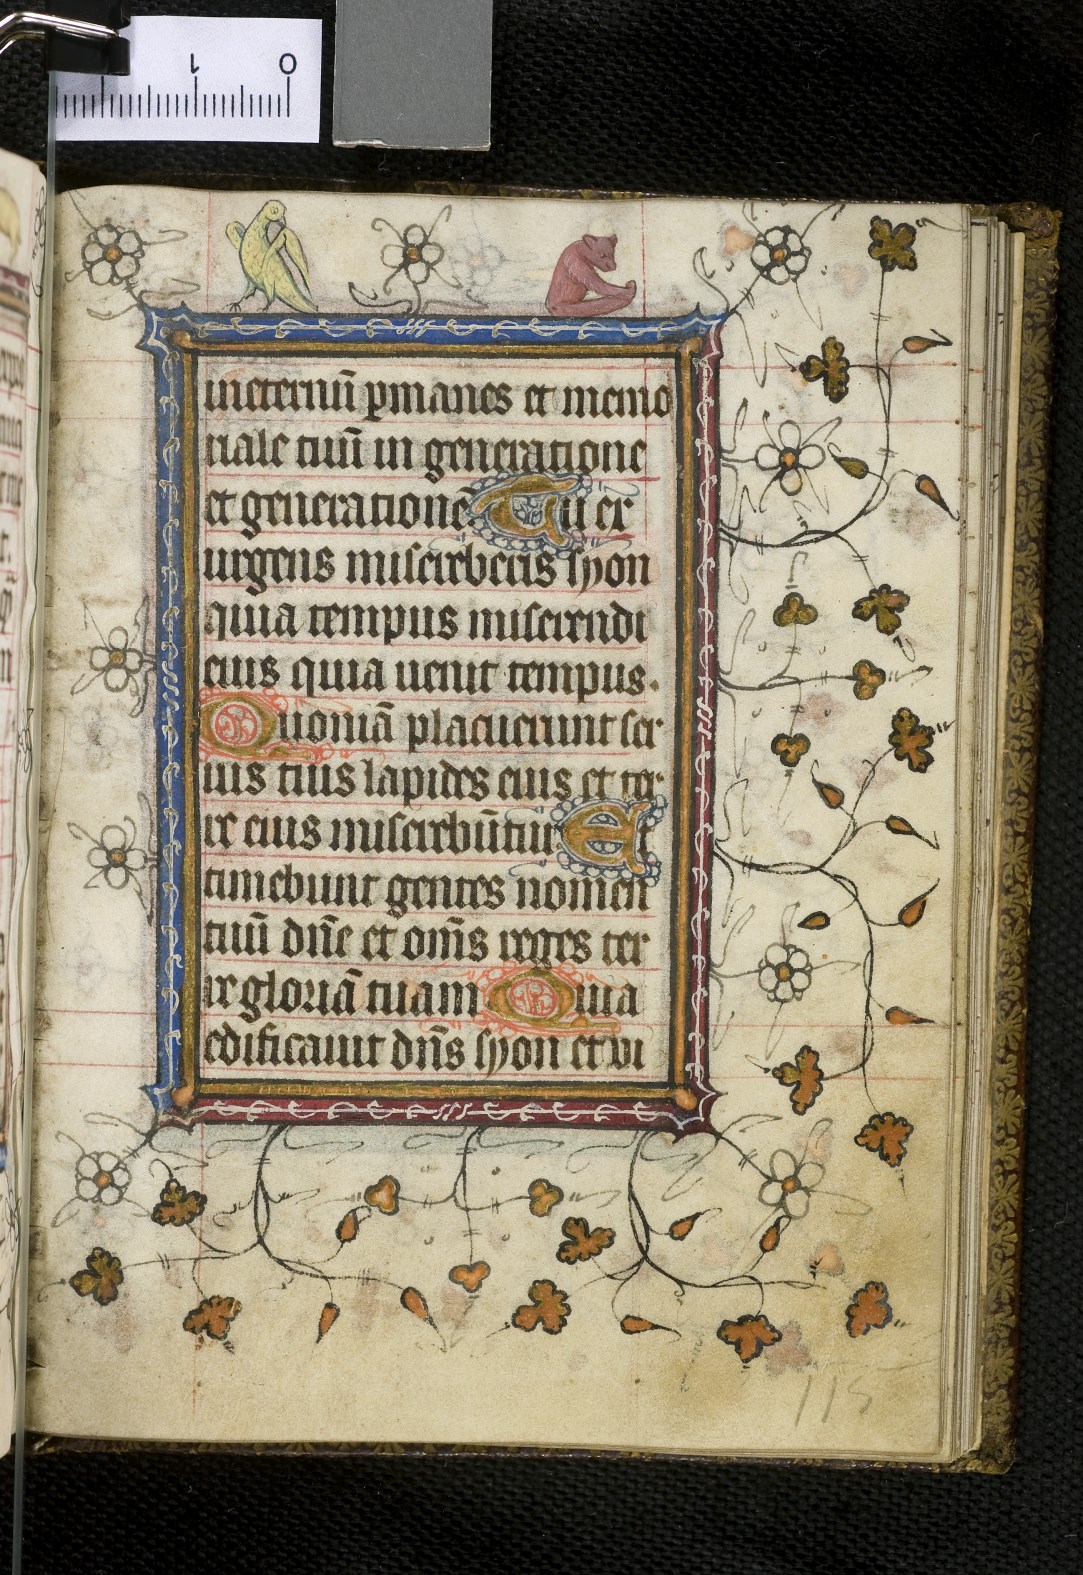 1 0
ineternū ꝑmanes et memo
riale tuū in generatione
et generationē. Tu ex
urgens misereberis syon
quia tempus miserendi
eius quia uenit tempus.
Quoniā placuerunt ser
uis tuis lapides eius et ter
re eius miserebūtur Et
timebunt gentes nomen
tuū dn̄e et om̄s reges ter
re gloriā tuam Quia
edificauit dn̄s syon et vi
115